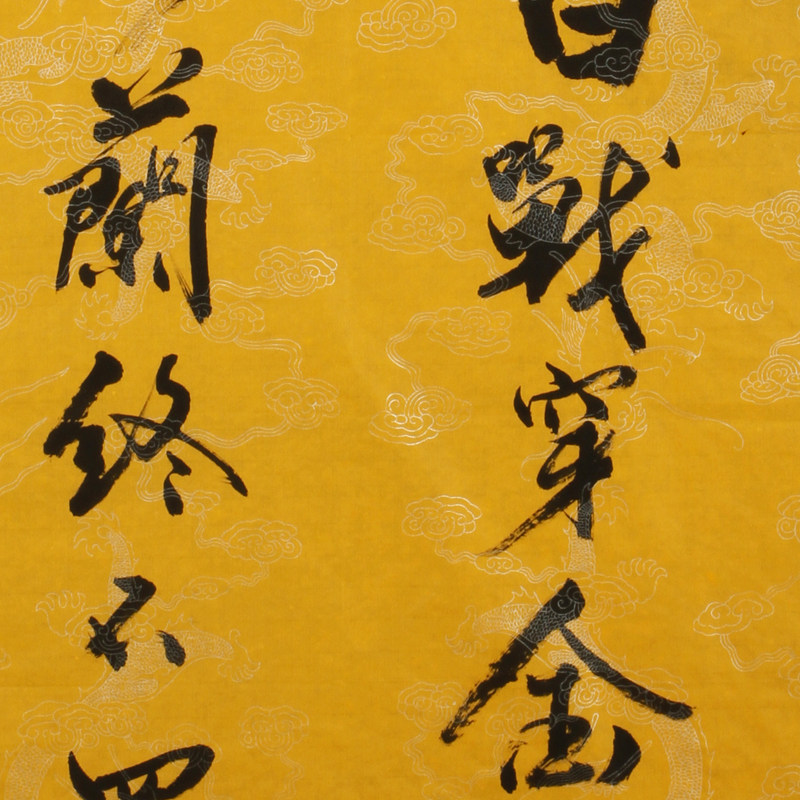 百戰穿金
蘭終不